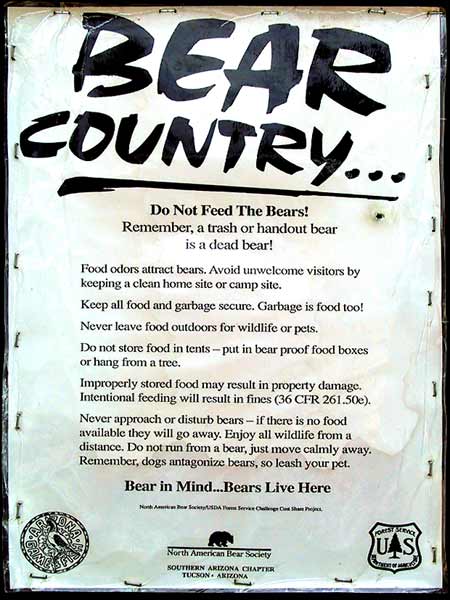 BEAR
COUNTRY...
Do Not Feed The Bears!
Remember, a trash or handout bear
is a dead bear!
Food odors attract bears. Avoid unwelcome visitors by
keeping a clean home site or camp site.
Keep all food and garbage secure. Garbage is food too!
Never leave food outdoors for wildlife or pets.
Do not store food in tents – put in bear proof food boxes
or hang from a tree.
Improperly stored food may result in property damage.
Intentional feeding will result in fines (36 CFR 261.50e).
Never approach or disturb bears – if there is no food
available they will go away. Enjoy all wildlife from a
distance. Do not run from a bear, just move calmly away.
Remember, dogs antagonize bears, so leash your pet.
Bear in Mind...Bears Live Here
North American Bear Society/USDA Forest Service Challenge Cost Share Project.
ARIZONA
GAME & FISH
North American Bear Society
SOUTHERN ARIZONA CHAPTER
TUCSON • ARIZONA
FOREST SERVICE
U S
DEPARTMENT OF AGRICULTURE